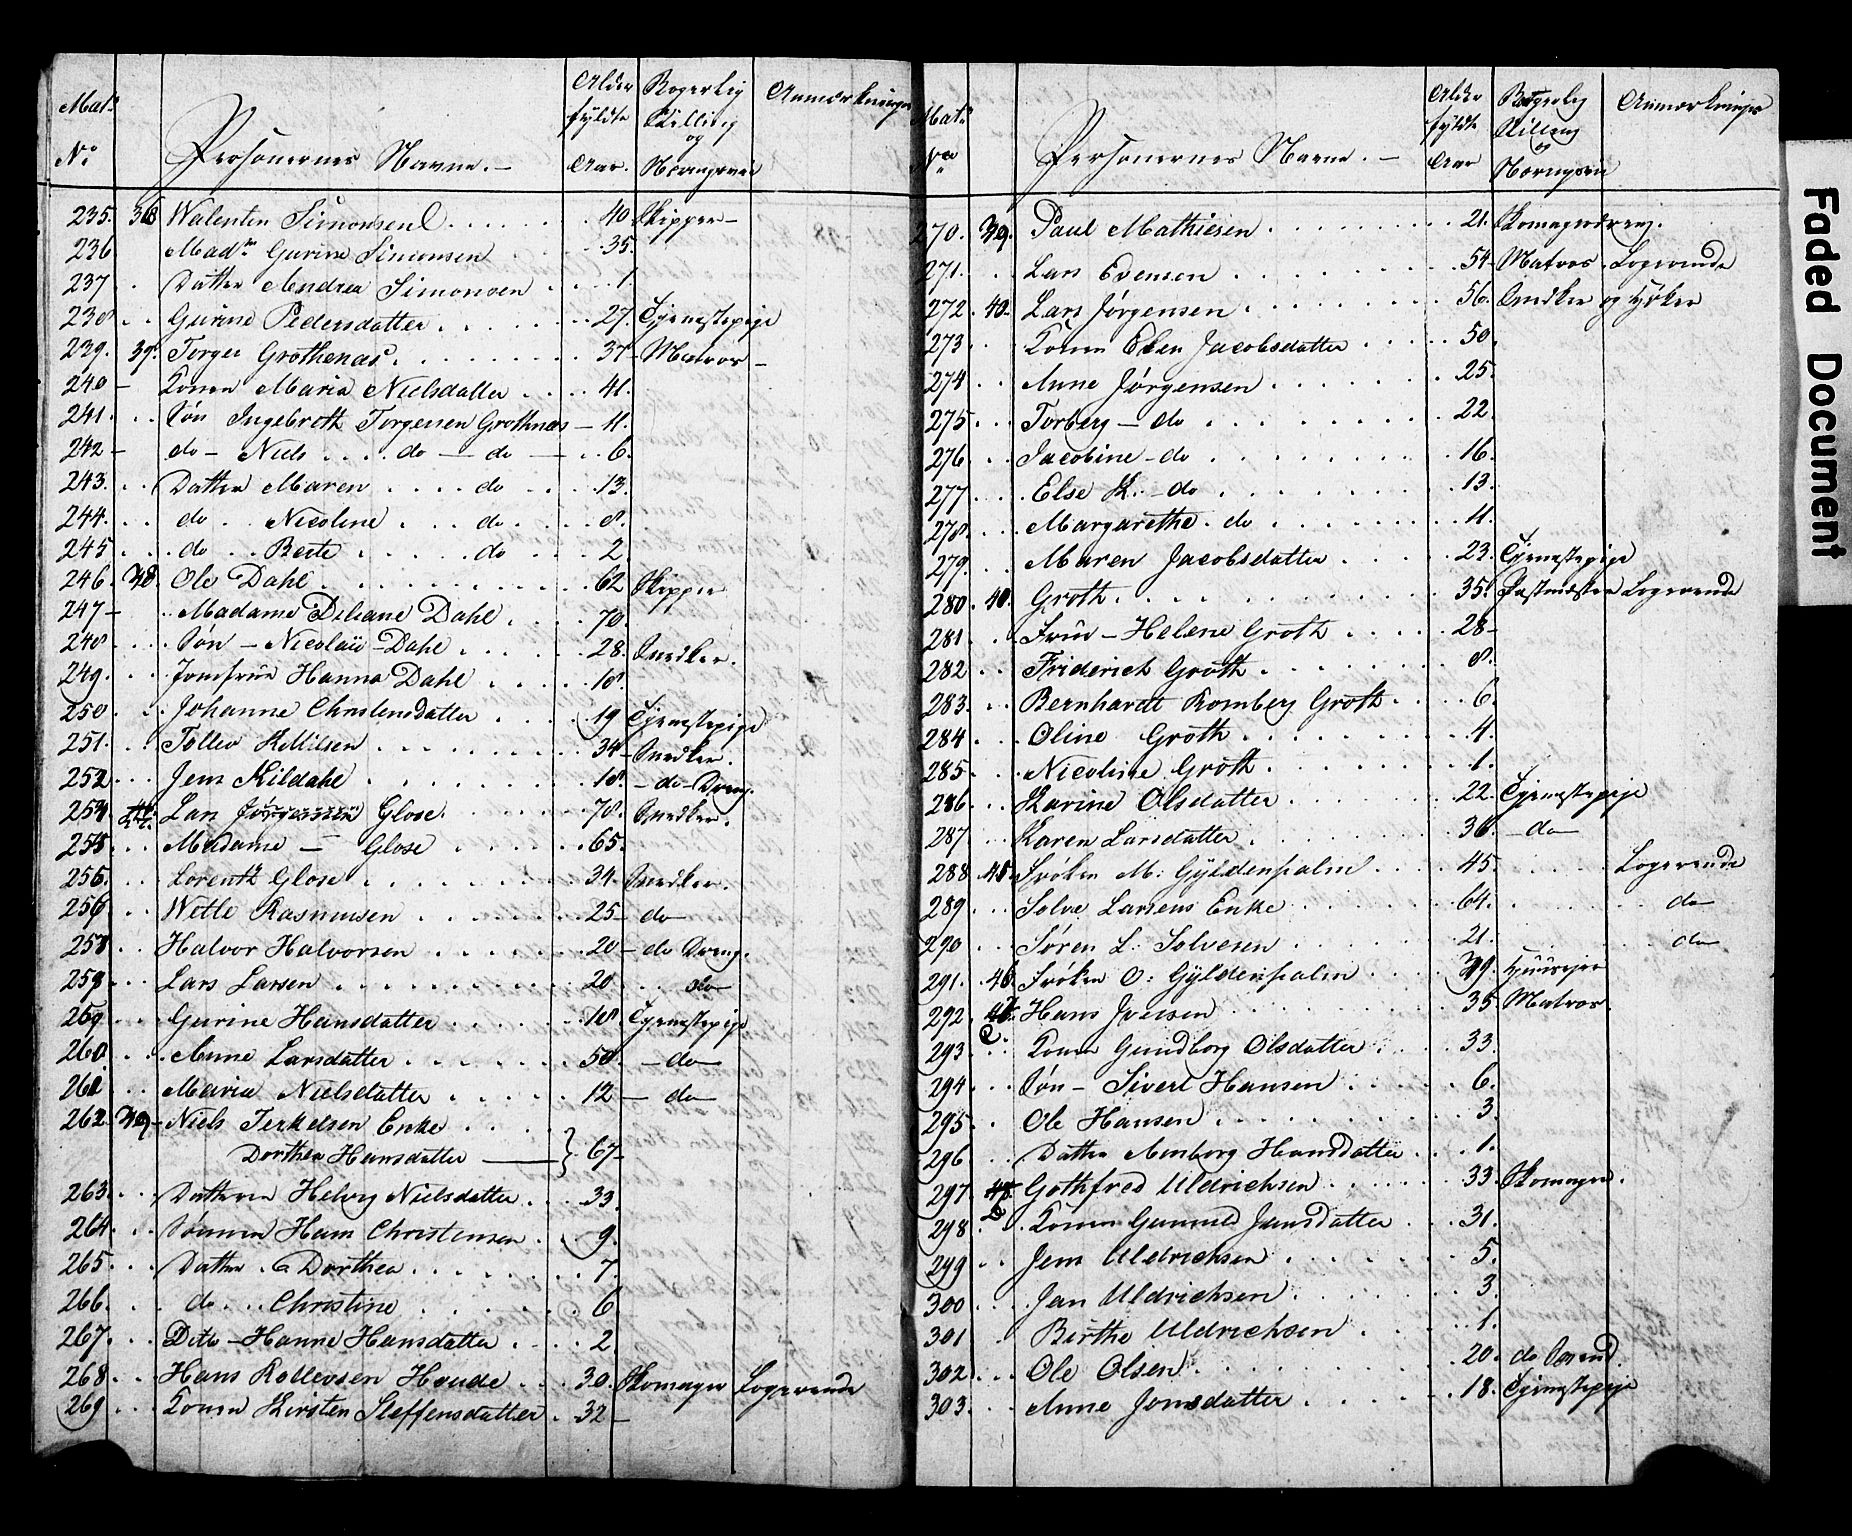 Mat:
No
Personernes Navne. —
Alder fyldte Aar.
Borgerlig Stilling og Næringsvei
Anmærkninger
235. 36 Walentin Simonsen 40. Skipper —
236 Madm Gurine Simonsen 35.
237 Datter Andrea Simonsen 1.
238 Gurine Pedersdatter 27. Tjenestepige
239. 37. Torger Grothenæs. 37 Matros —
240 — Konen Maria Nielsdatter 41.
241. Søn Ingebreth Torgersen Grothnæs — 11.
242 — do — Niels do — do — 6.
243. Datter Maren do 13.
244. do Nicoline do 8.
245 do Berte do 2
246 38. Ole Dahl 62 Skipper
247 — Madame Diliane Dahl 70.
248 Søn — Nicolai Dahl 28. Snedker.
249. Jomfrue Hanna Dahl 18.
250 Johanne Christensdatter 19 Tjenestepige
251. Tollev Killilsen 34 — Snedker.
252 Jens Kildahl 18 — do Dreng.
254 Lars Jørgensen Glose. 78. Snedker.
255 Madame — Glose 65.
256. Lorentz Glose 34. Snedker.
256 Wetle Rasmusen 25 — do
258 Halvor Halvorsen 20 — do Dreng.
259 Lars Larsen 20 do
259 Gurine Hansdatter 18 Tjenestepige
260 Anne Larsdatter 50. — do —
261 Maria Nielsdatter 12 — do —
262 39 — Niels Terkelsen Enke
Dorthea Hansdatter } 67 —
263. Datteren Helvig Nielsdatter 33.
264 Sønnen Hans Christensen 9.
265 Datter Dorthea 7.
266. do Christine 6.
267. Dito — Hanne Hansdatter 2.
268 Hans Rollevsen Houde 30. Skomager Logerende
269 Konen Kirsten Steffensdatter 32 —
Mat:
No
Personernes Navne. —
Alder fyldte Aar
Borgerlig Stilling og Næringsvei
Anmærkninger
270. 39. Paul Mathiesen 21. Skomagerdreng.
271. Lars Evensen 54 — Matros Logerende
272 40. Lars Jørgensen 56. Snedker og Høker
273 Konen Elen Jacobsdatter 50.
274 Anne Jørgensen 25.
275 Torberg — do 22.
276 Jacobine — do 16.
277 Else K. — do 13.
278. Margarethe. do 11.
279. Maren Jacobsdatter 23. Tjenestepige
280 40. Groth 35. Postmester Logerende
281 Frue — Helene Groth 28 —
282 Friderich Groth 8.
283. Bernhardt Romberg Groth 6.
284 Oline Groth 4.
285 Nicoline Groth 1.
286 Karine Olsdatter 22. Tjenestepige
287 Karen Larsdatter 36. — do —
288 45. Frøken M: Gyldenpalm 45. Logerende
289 Solve Larsens Enke 64. do
290 Søren L. Solvesen 21. do
291. 46. Frøken O: Gyldenpalm 39. Huuseier
292. Hans Iversen 35 Matros.
293 Konen Gundborg Olsdatter 33.
294 Søn — Sivert Hansen 6.
295 Ole Hansen 3.
296 Datter Anborg Hansdatter 1.
297 Gothfred Uldrichsen 33. Skomager.
298 Konen Gunnild Jansdatter 31.
299 Jens Uldrichsen 5.
300 Jan Uldrichsen 3
301 Birthe Uldrichsen 1.
302 Ole Olsen 20. do Svend.
303. Anne Jonsdatter 18. Tjenestepige
Faded Document